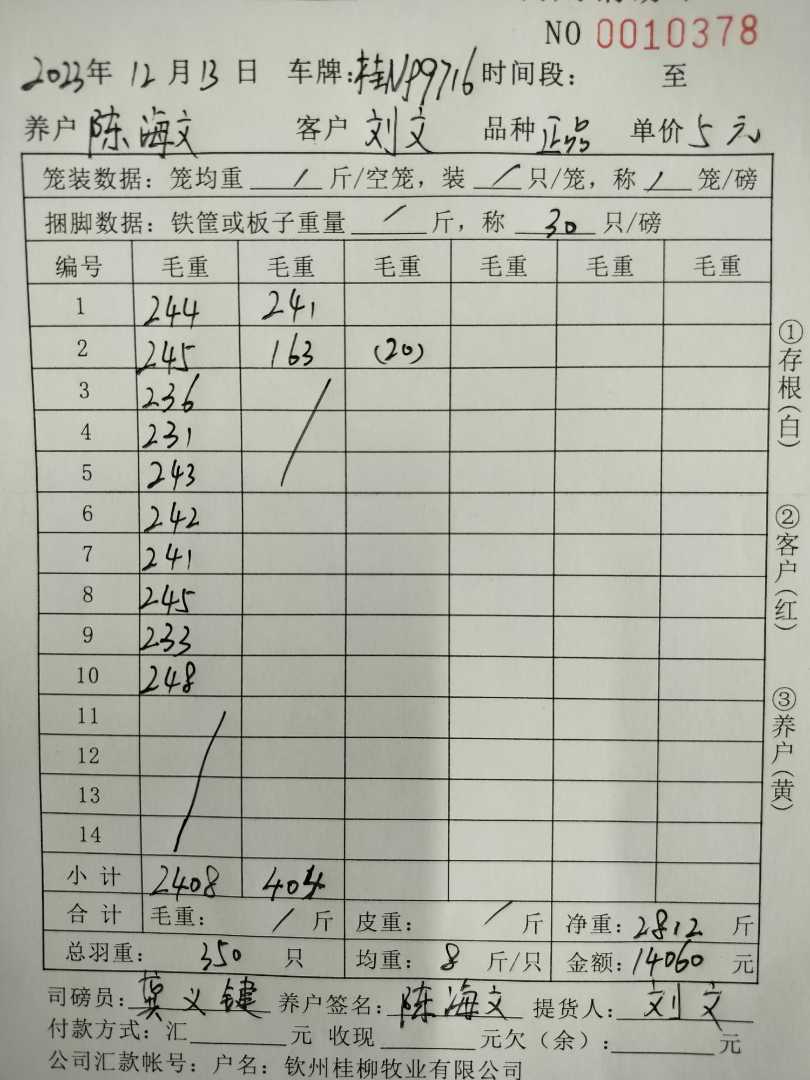 NO 0010378
2023年 12月13日 车牌:桂NP9716 时间段: 至
养户 陈海文 客户 刘文 品种 正品 单价 5 元
笼装数据: 笼均重 / 斤/空笼, 装 / 只/笼, 称 / 笼/磅
捆脚数据: 铁筐或板子重量 / 斤, 称 30 只/磅
编号 毛重 毛重 毛重 毛重 毛重 毛重
1 244 241
2 245 163 (20)
3 236
4 231
5 243
6 242
7 241
8 245
9 233
10 248
11
12
13
14
小计 2408 404
合计 毛重: / 斤 皮重: / 斤 净重: 2812 斤
总羽重: 350 只 均重: 8 斤/只 金额: 14060 元
司磅员: 莫义键 养户签名: 陈海文 提货人: 刘文
付款方式: 汇 元 收现 元欠(余): 元
公司汇款帐号: 户名: 钦州桂柳牧业有限公司
①存根(白)
②客户(红)
③养户(黄)